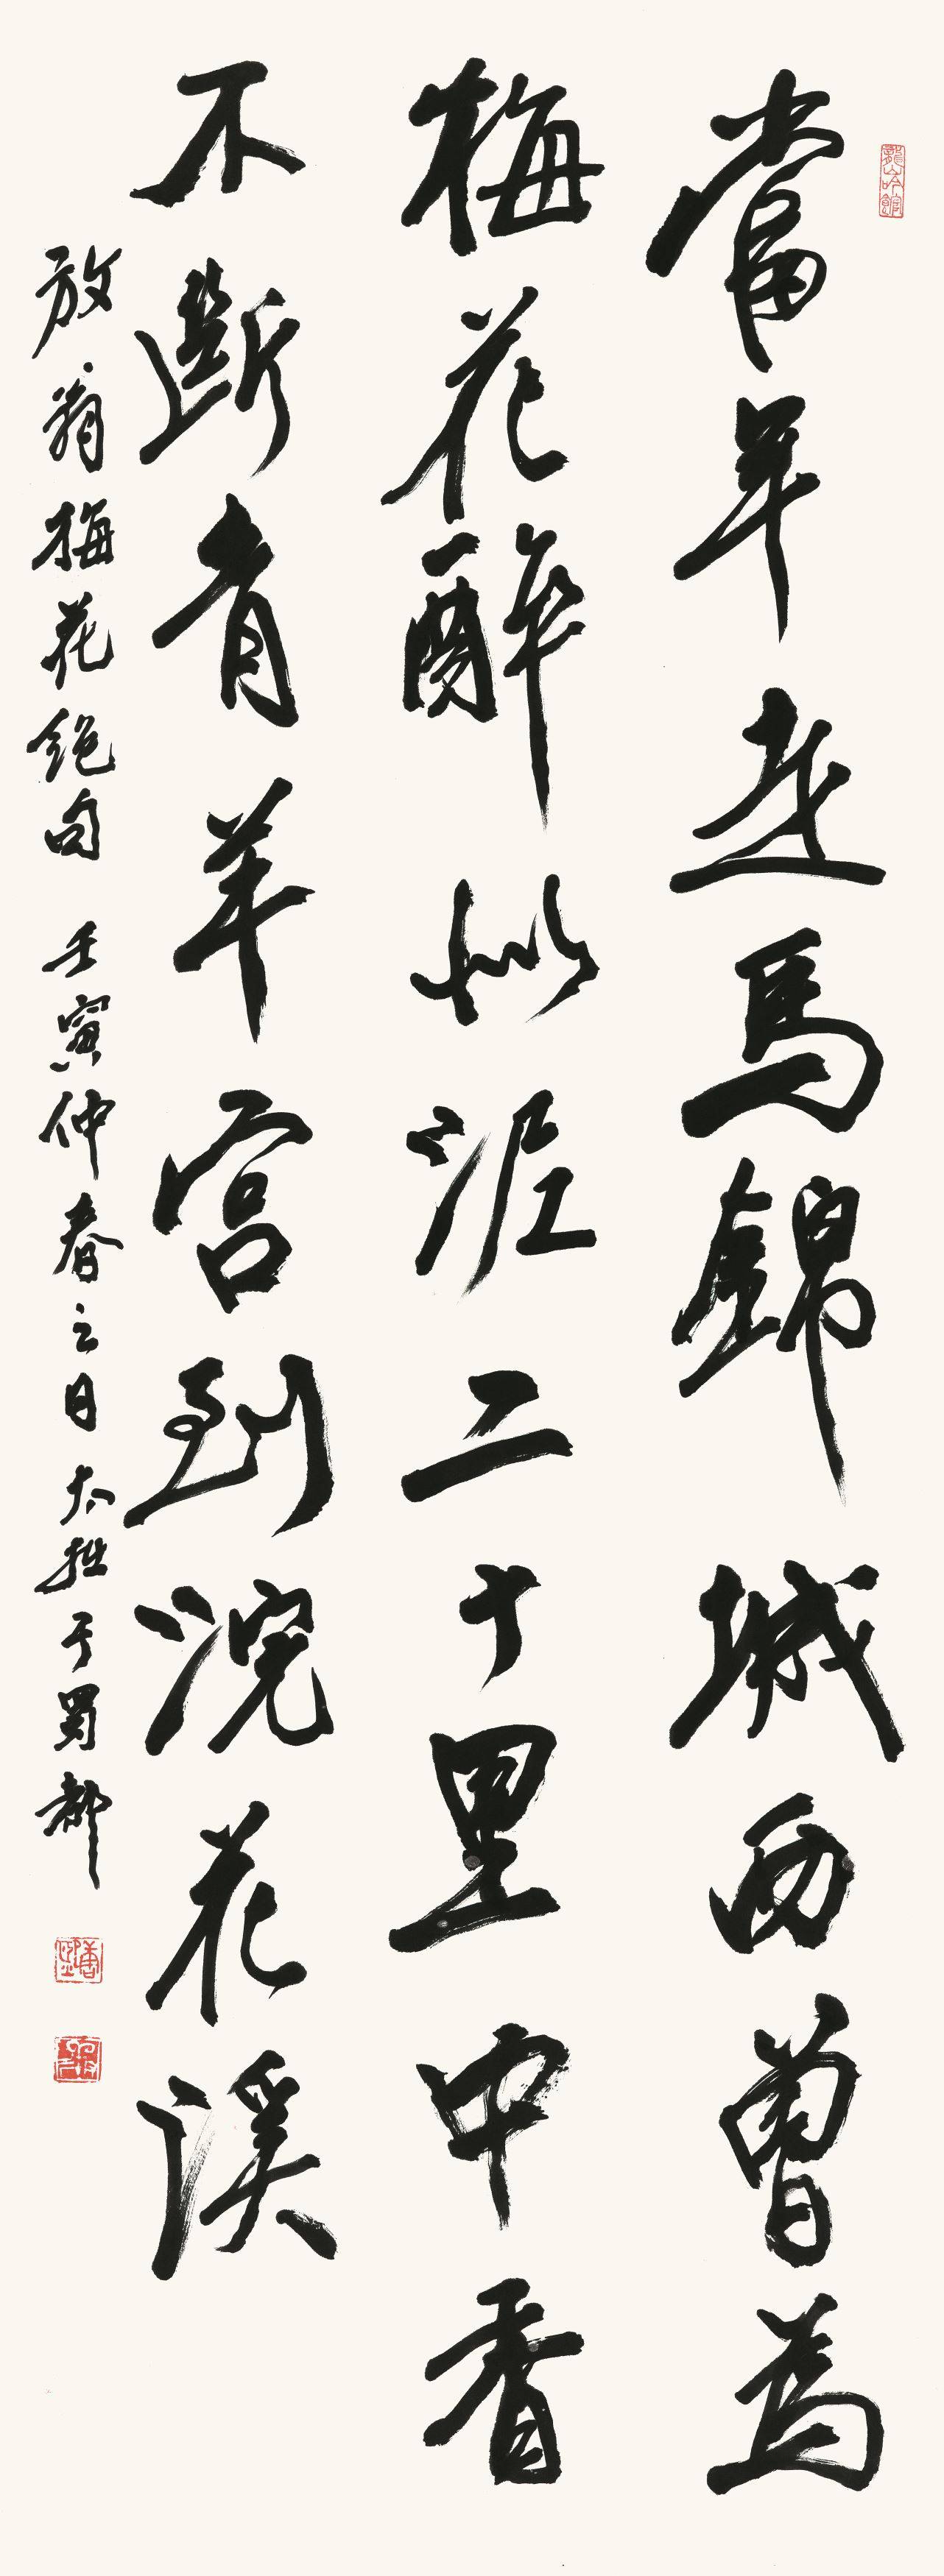 當年走馬錦城西曾為
梅花醉似泥二十里中香
不斷青羊宮到浣花溪
放翁梅花絕句 壬寅仲春之日 大拙于蜀都
龍吟館